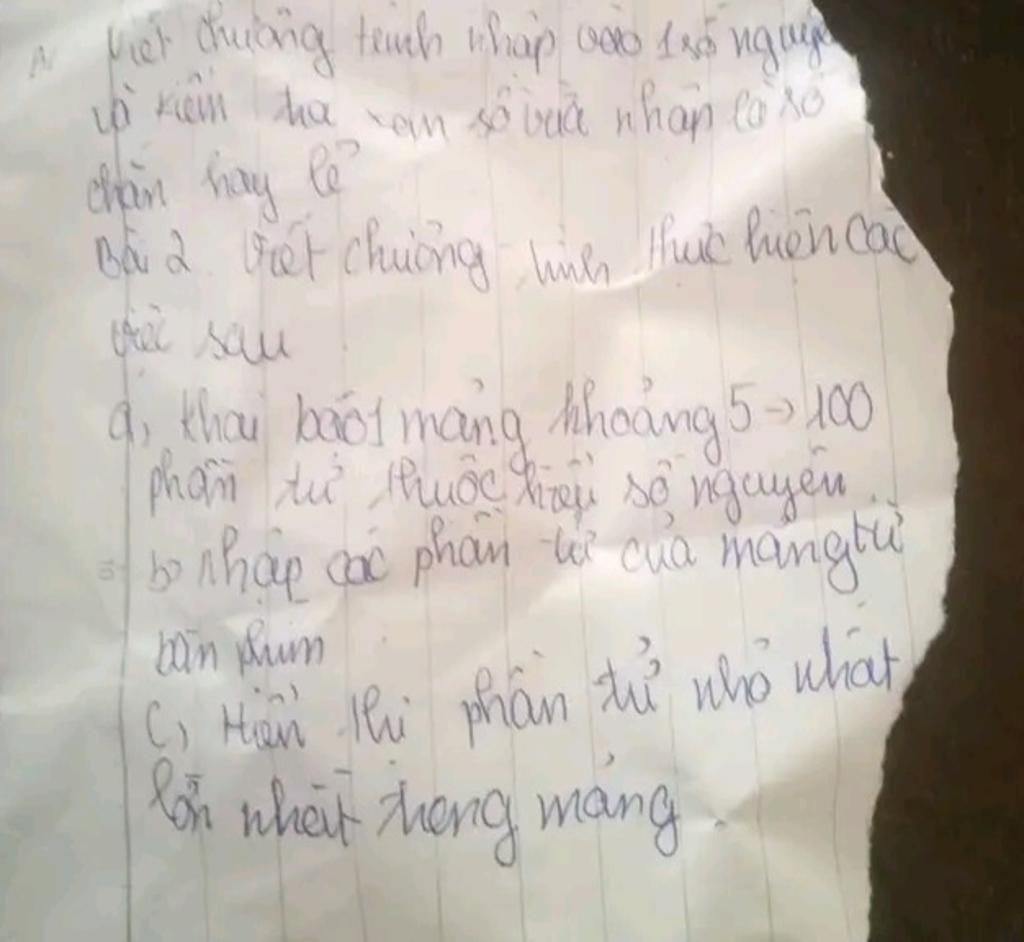 Viết chương trình nhập vào 1 số nguyên
và kiểm tra xem số vừa nhập là số
chẵn hay lẻ
Bài 2. Viết chương trình thực hiện các
việc sau
a, Khai báo 1 mảng khoảng 5 → 100
phần tử thuộc kiểu số nguyên.
b, Nhập các phần tử của mảng từ
bàn phím
c, Hiển thị phần tử nhỏ nhất
lớn nhất trong mảng.